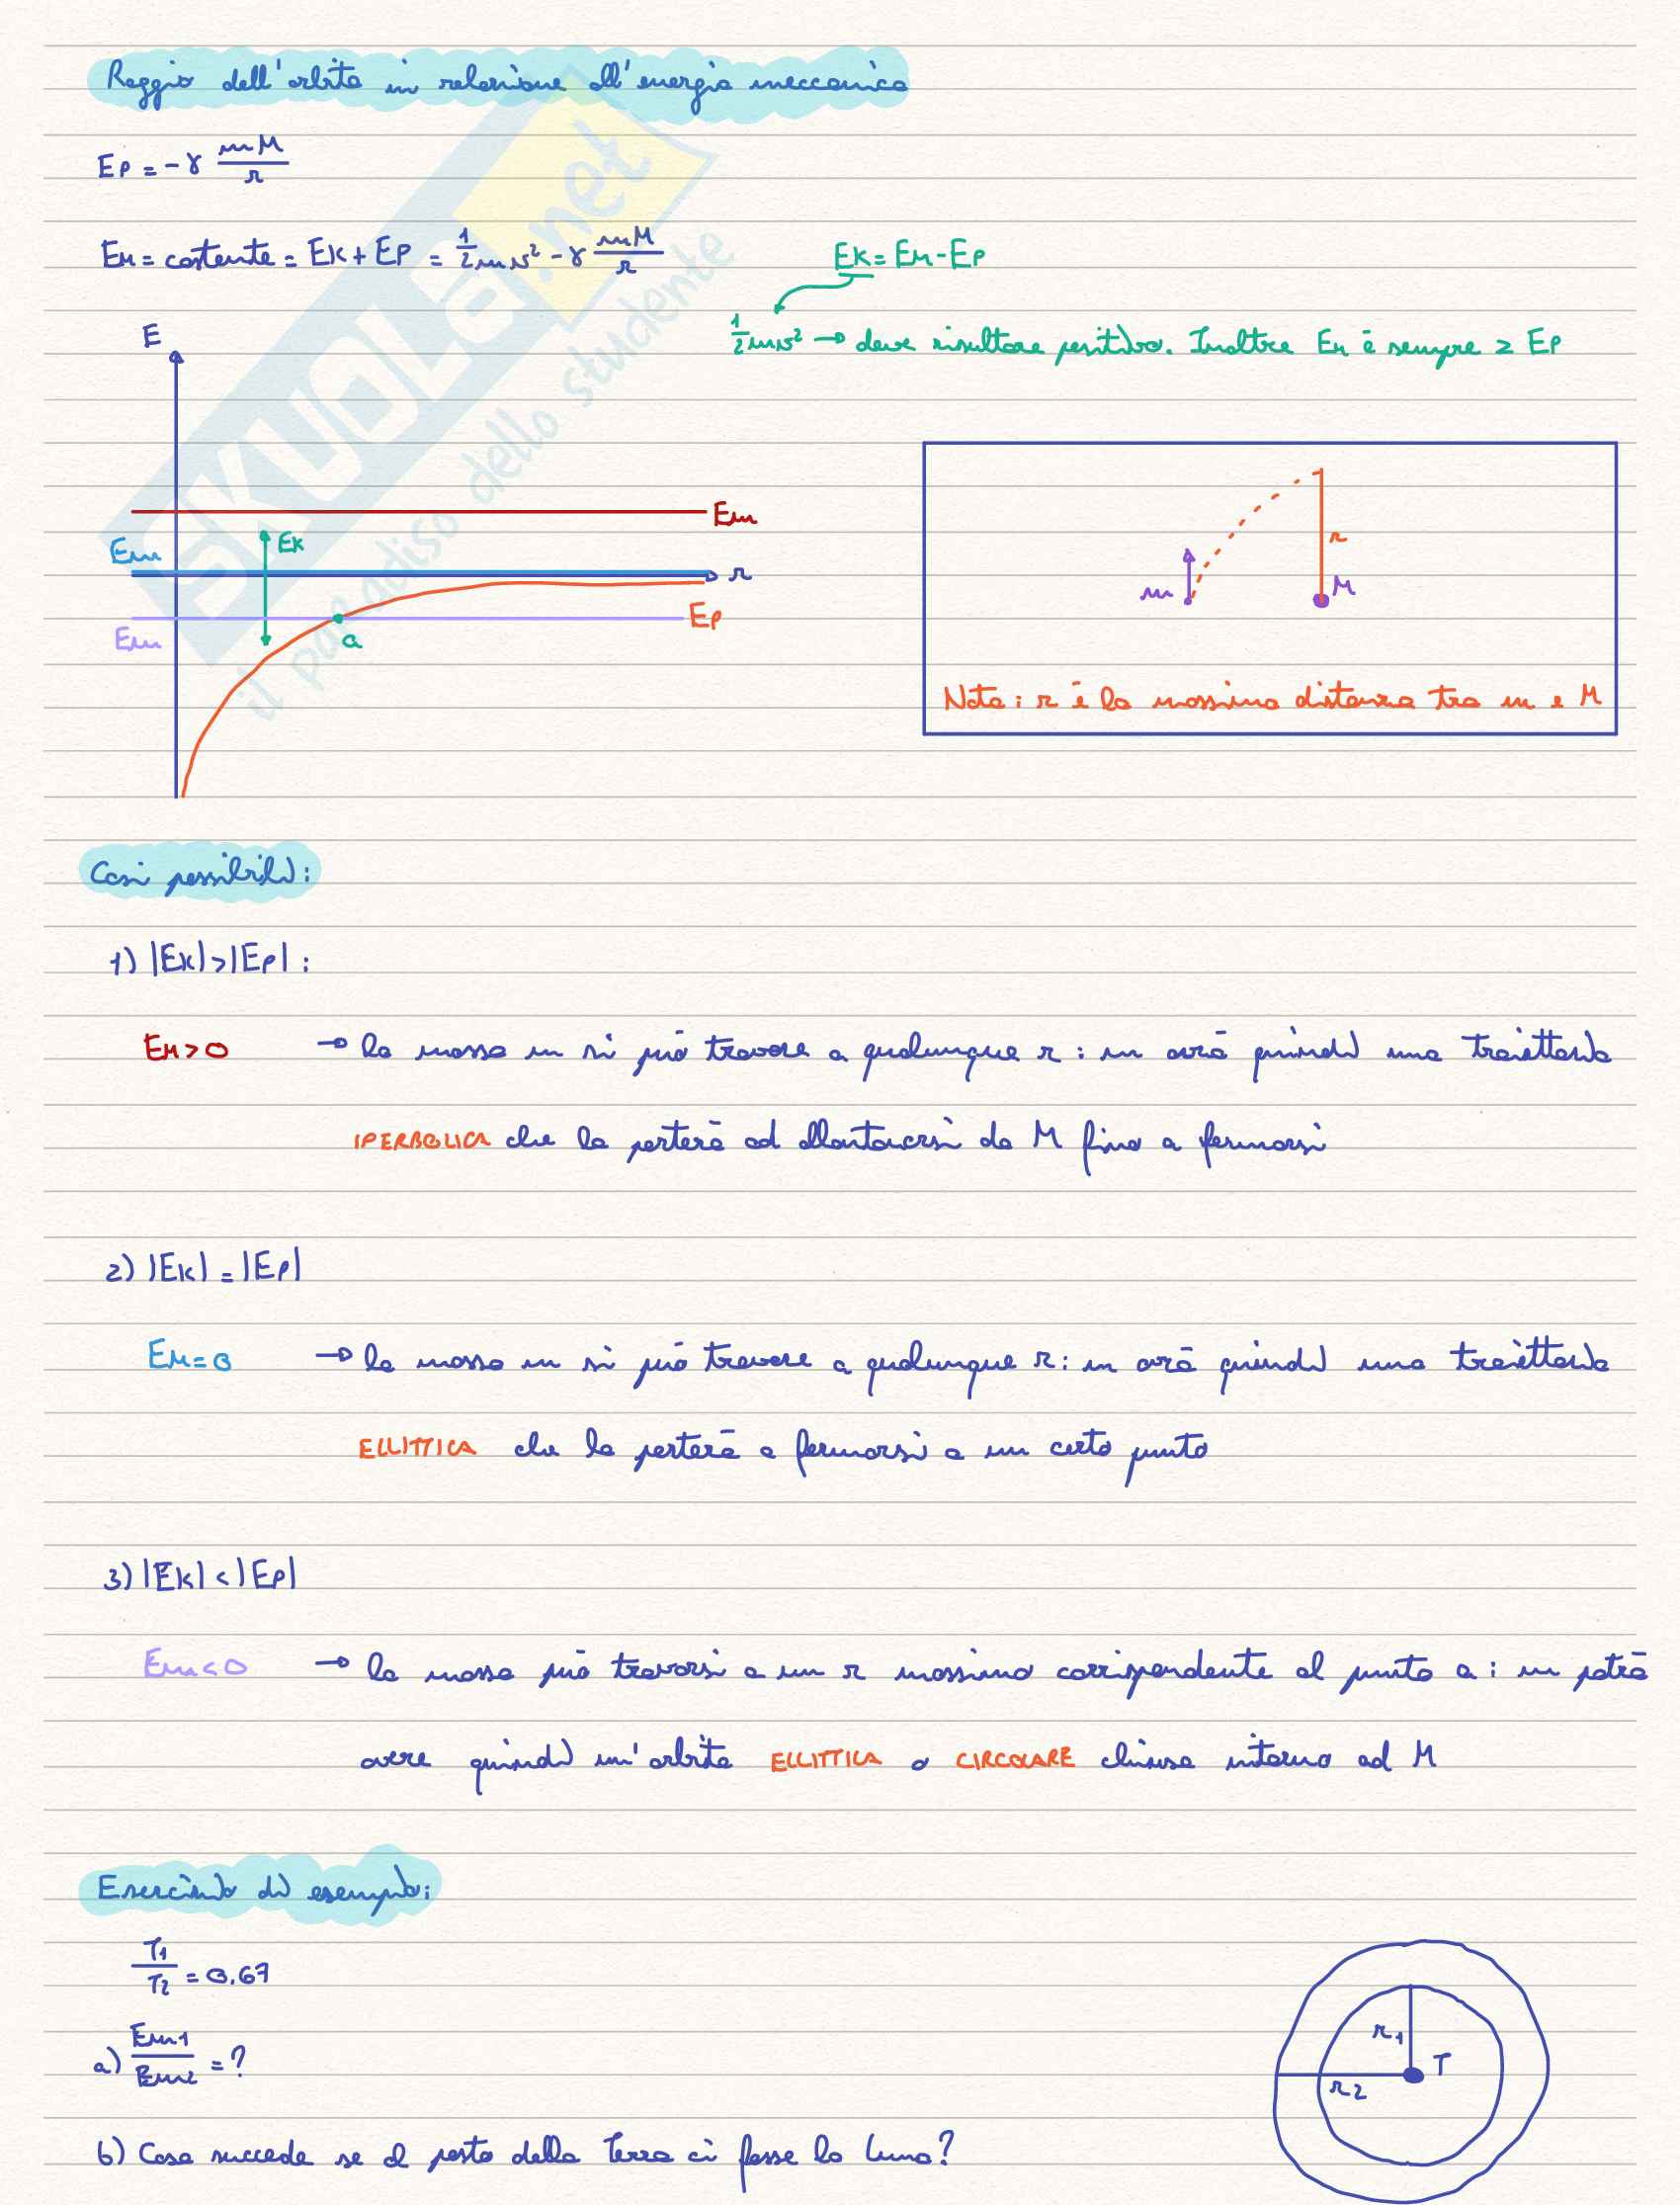 Raggio dell'orbita in relazione all'energia meccanica
Ep = -γ mM/r
EM = costante = EK + EP = 1/2 mv² - γ mM/r
EK = EM - EP
1/2 mv² → deve risultare positivo. Inoltre EM è sempre ≥ EP
E
Em
EK
Em
r
Ep
Em
a
r
m
M
Nota: r è la massima distanza tra m e M
SKUOLA.net
il paradiso dello studente
Casi possibili:
1) |EK| > |Ep| :
EM > 0 → la massa m si può trovare a qualunque r : m avrà quindi una traiettoria
IPERBOLICA che la porterà ad allontanarsi da M fino a fermarsi
2) |EK| = |Ep|
EM = 0 → la massa m si può trovare a qualunque r : m avrà quindi una traiettoria
ELLITTICA che la porterà a fermarsi a un certo punto
3) |EK| < |Ep|
Em < 0 → la massa può trovarsi a un r massimo corrispondente al punto a : m potrà
avere quindi un'orbita ELLITTICA o CIRCOLARE chiusa intorno ad M
Esercizio di esempio:
T1/T2 = 0.67
a) Em1/Em2 = ?
r1
T
r2
b) Cosa succede se al posto della Terra ci fosse la Luna?